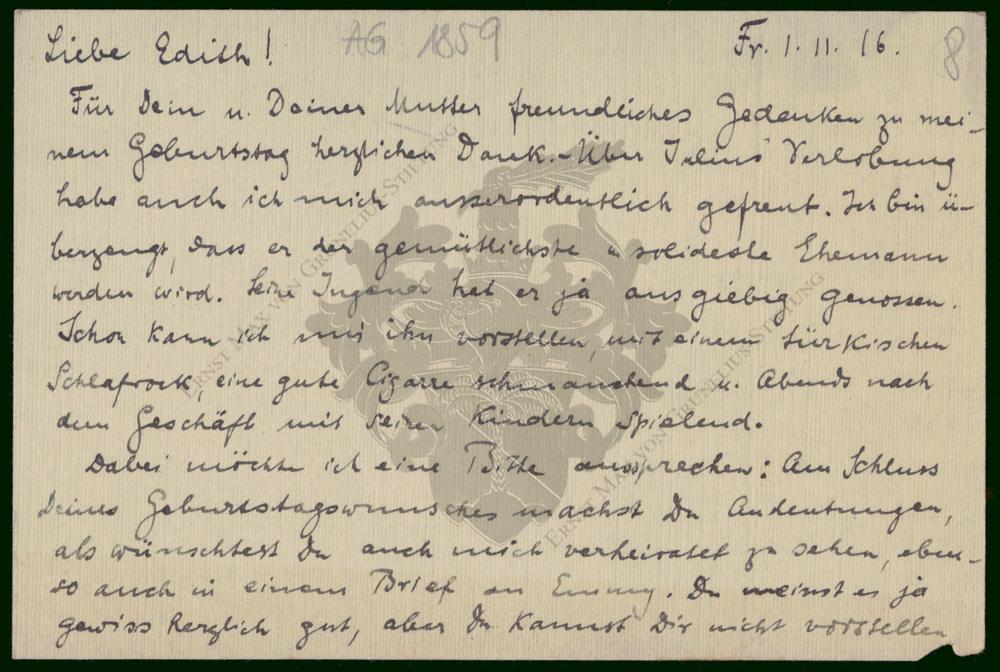 Liebe Edith! AG 1859 Fr. 1. 11. 16. 8
Für Dein u. Deiner Mutter freundliches Gedenken zu mei-
nem Geburtstag herzlichen Dank. - Über Julius' Verlobung
habe auch ich mich ausserordentlich gefreut. Ich bin ü-
berzeugt, dass er der gemütlichste u. solideste Ehemann
werden wird. Seine Jugend hat er ja ausgiebig genossen.
Schon kann ich mir ihn vorstellen, mit einem türkischen
Schlafrock, eine gute Cigarre schmauchend u. Abends nach
dem Geschäft mit seinen Kindern spielend.
Dabei möchte ich eine Bitte aussprechen: Am Schluss
Deines Geburtstagswunsches machst Du Andeutungen,
als wünschtest Du auch mich verheiratet zu sehen, eben-
so auch in einem Brief an Emmy. Du meinst es ja
gewiss herzlich gut, aber Du kannst Dir nicht vorstellen
ERNST MAX VON GRUNELIUS-STIFTUNG
ERNST MAX VON GRUNELIUS-STIFTUNG